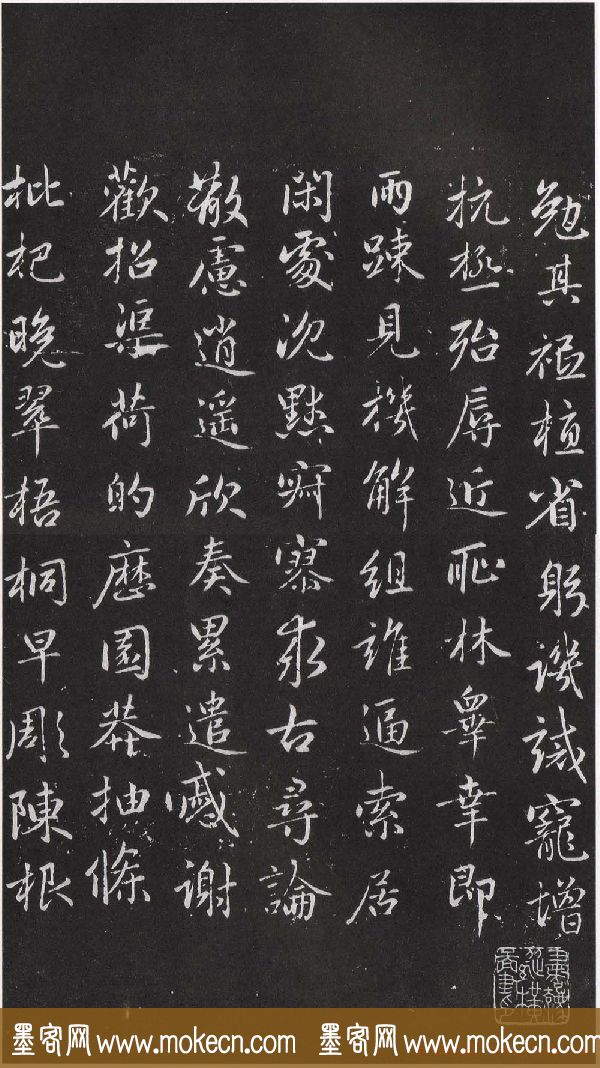 勉其祗植省躬譏誡寵增
抗極殆辱近恥林皋幸即
兩踈見機解組誰逼索居
閑處沉默寂寥求古尋論
散慮逍遥欣奏累遣慼謝
歡招渠荷的歷園莽抽條
枇杷晚翠梧桐早彫陳根
墨客网 www.mokecn.com 墨客网 www.mokecn.com